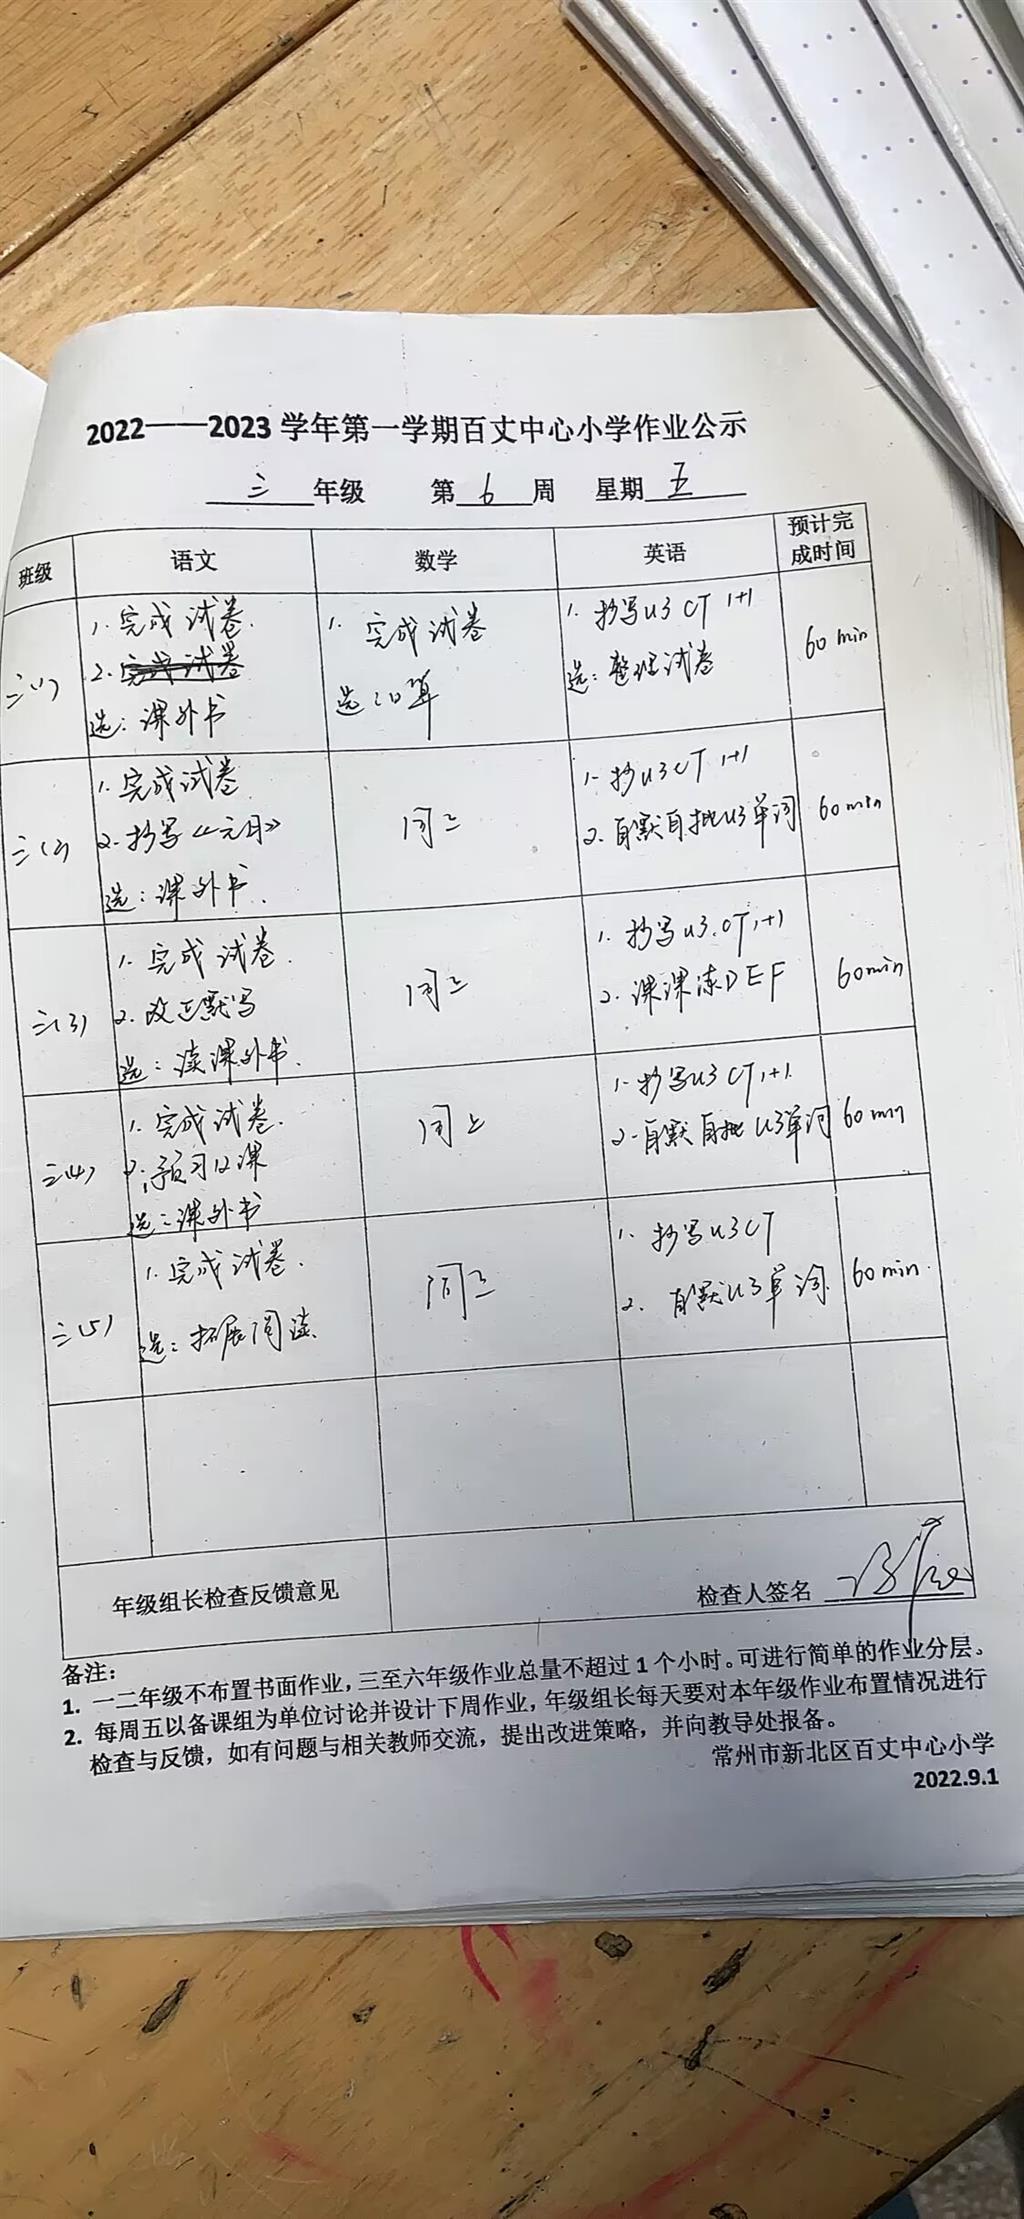 2022——2023 学年第一学期百丈中心小学作业公示
三 年级 第 6 周 星期 五
班级 语文 数学 英语 预计完成时间
三(1)
1. 完成试卷.
2. 完成试卷
选: 课外书
1. 完成试卷
选: 口算
1. 抄写U3 CT 1+1
选: 整理试卷
60 min
三(2)
1. 完成试卷
2. 抄写《元日》
选: 课外书.
同上
1. 抄U3CT 1+1
2. 自默自批U3单词
60 min
三(3)
1. 完成试卷.
2. 改正默写
选: 读课外书.
同上
1. 抄写U3.CT 1+1
2. 课课练DEF
60min
三(4)
1. 完成试卷.
2. 预习12课
选: 课外书
同上
1. 抄写U3 CT 1+1.
2. 自默自批U3单词
60 min
三(5)
1. 完成试卷.
选: 拓展阅读.
同上
1. 抄写U3CT
2. 自默U3单词.
60 min.
年级组长检查反馈意见
检查人签名
备注:
1. 一二年级不布置书面作业,三至六年级作业总量不超过1个小时。可进行简单的作业分层。
2. 每周五以备课组为单位讨论并设计下周作业,年级组长每天要对本年级作业布置情况进行
检查与反馈,如有问题与相关教师交流,提出改进策略,并向教导处报备。
常州市新北区百丈中心小学
2022.9.1